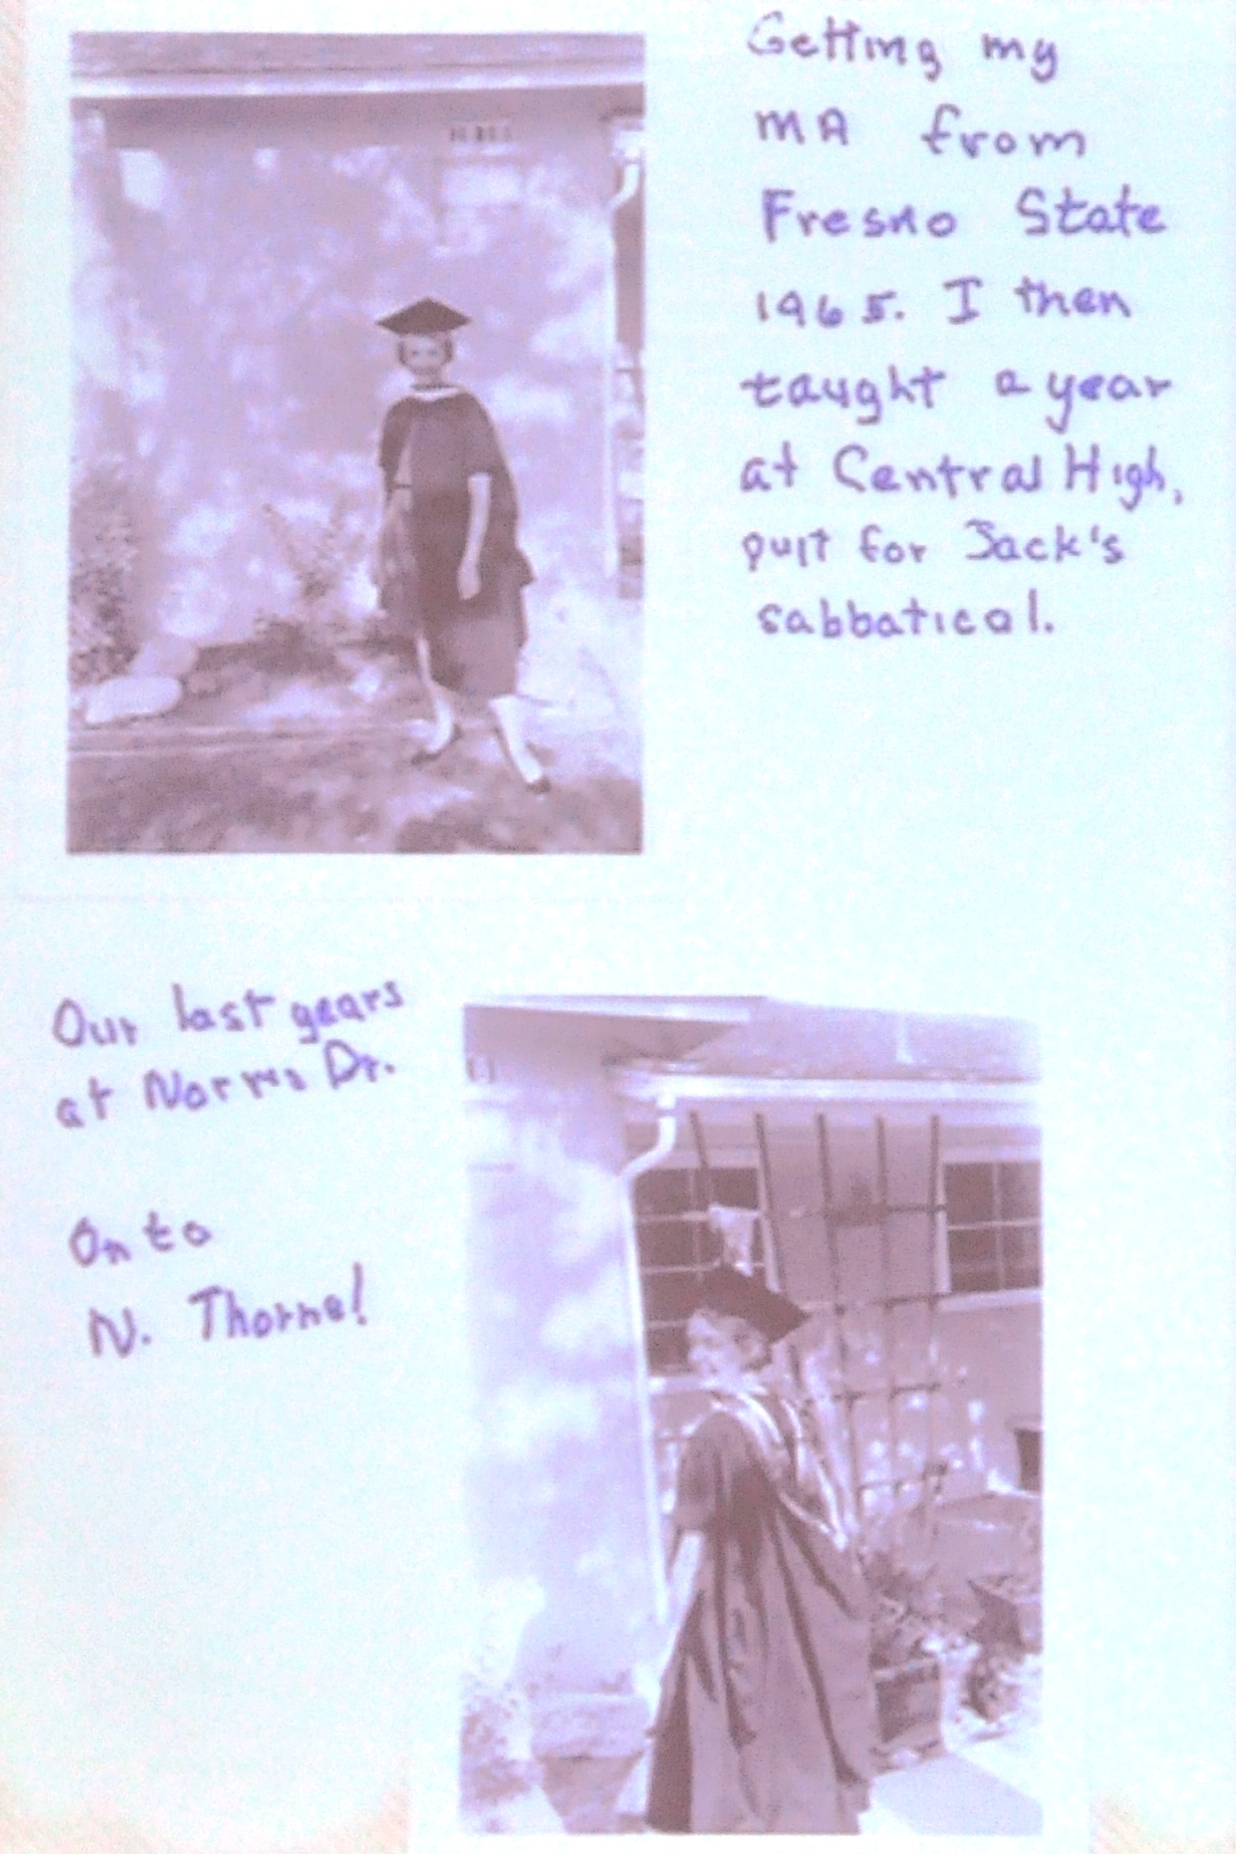 Getting my
MA from
Fresno State
1965. I then
taught a year
at Central High,
quit for Jack's
sabbatical.
Our last years
at Norris Dr.
On to
N. Thorne!